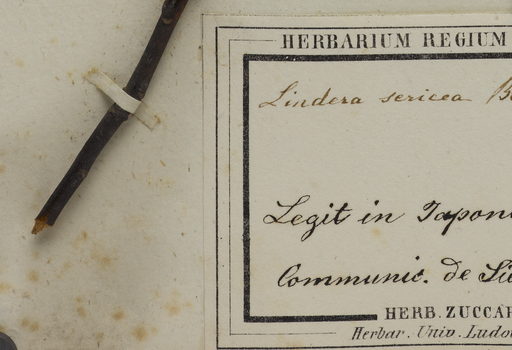 HERBARIUM REGIUM
Lindera sericea
Legit in Japon
Communic. de Sie
HERB. ZUCCAR
Herbar. Univ. Ludov